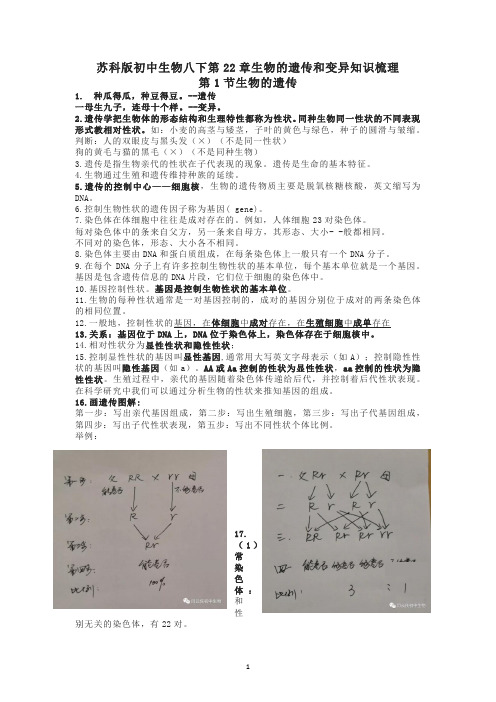 苏科版初中生物八下第22章生物的遗传和变异知识梳理
第1节生物的遗传
1. 种瓜得瓜，种豆得豆。--遗传
一母生九子，连母十个样。--变异。
2.遗传学把生物体的形态结构和生理特性都称为性状。同种生物同一性状的不同表现
形式教相对性状。如：小麦的高茎与矮茎，子叶的黄色与绿色，种子的圆滑与皱缩。
判断：人的双眼皮与黑头发（×）（不是同一性状）
狗的黄毛与猫的黑毛（×）（不是同种生物）
3.遗传是指生物亲代的性状在子代表现的现象。遗传是生命的基本特征。
4.生物通过生殖和遗传维持种族的延续。
5.遗传的控制中心——细胞核，生物的遗传物质主要是脱氧核糖核酸，英文缩写为
DNA。
6.控制生物性状的遗传因子称为基因( gene)。
7.染色体在体细胞中往往是成对存在的。例如，人体细胞23对染色体。
每对染色体中的条来自父方，另一条来自母方，其形态、大小- -般都相同。
不同对的染色体，形态、大小各不相同。
8.染色体主要由DNA和蛋白质组成，在每条染色体上一般只有一个DNA分子。
9.在每个DNA分子上有许多控制生物性状的基本单位，每个基本单位就是一个基因。
基因是包含遗传信息的DNA片段，它们位于细胞的染色体中。
10.基因控制性状。基因是控制生物性状的基本单位。
11.生物的每种性状通常是一对基因控制的，成对的基因分别位于成对的两条染色体
的相同位置。
12.一般地，控制性状的基因，在体细胞中成对存在，在生殖细胞中成单存在
13.关系：基因位于DNA上，DNA位于染色体上，染色体存在于细胞核中。
14.相对性状分为显性性状和隐性性状；
15.控制显性性状的基因叫显性基因,通常用大写英文字母表示（如A）；控制隐性性
状的基因叫隐性基因（如a）。AA或Aa控制的性状为显性性状，aa控制的性状为隐
性性状。生殖过程中，亲代的基因随着染色体传递给后代，并控制着后代性状表现。
在科学研究中我们可以通过分析生物的性状来推知基因的组成。
16.画遗传图解:
第一步：写出亲代基因组成，第二步：写出生殖细胞，第三步：写出子代基因组成，
第四步：写出子代性状表现，第五步：写出不同性状个体比例。
举例：
第一步： 父 RR × rr 母
能卷舌 不能卷舌
第二步： R r
第三步： Rr
第四步： 能卷舌
比例： 100%
一. 父 Rr × Rr 母
二 R r R r
三. RR Rr Rr rr
四 能卷舌 能卷舌 能卷舌
比例： 3 : 1
17.
（1）
常
染
色
体：
和
性
别无关的染色体，有22对。
1